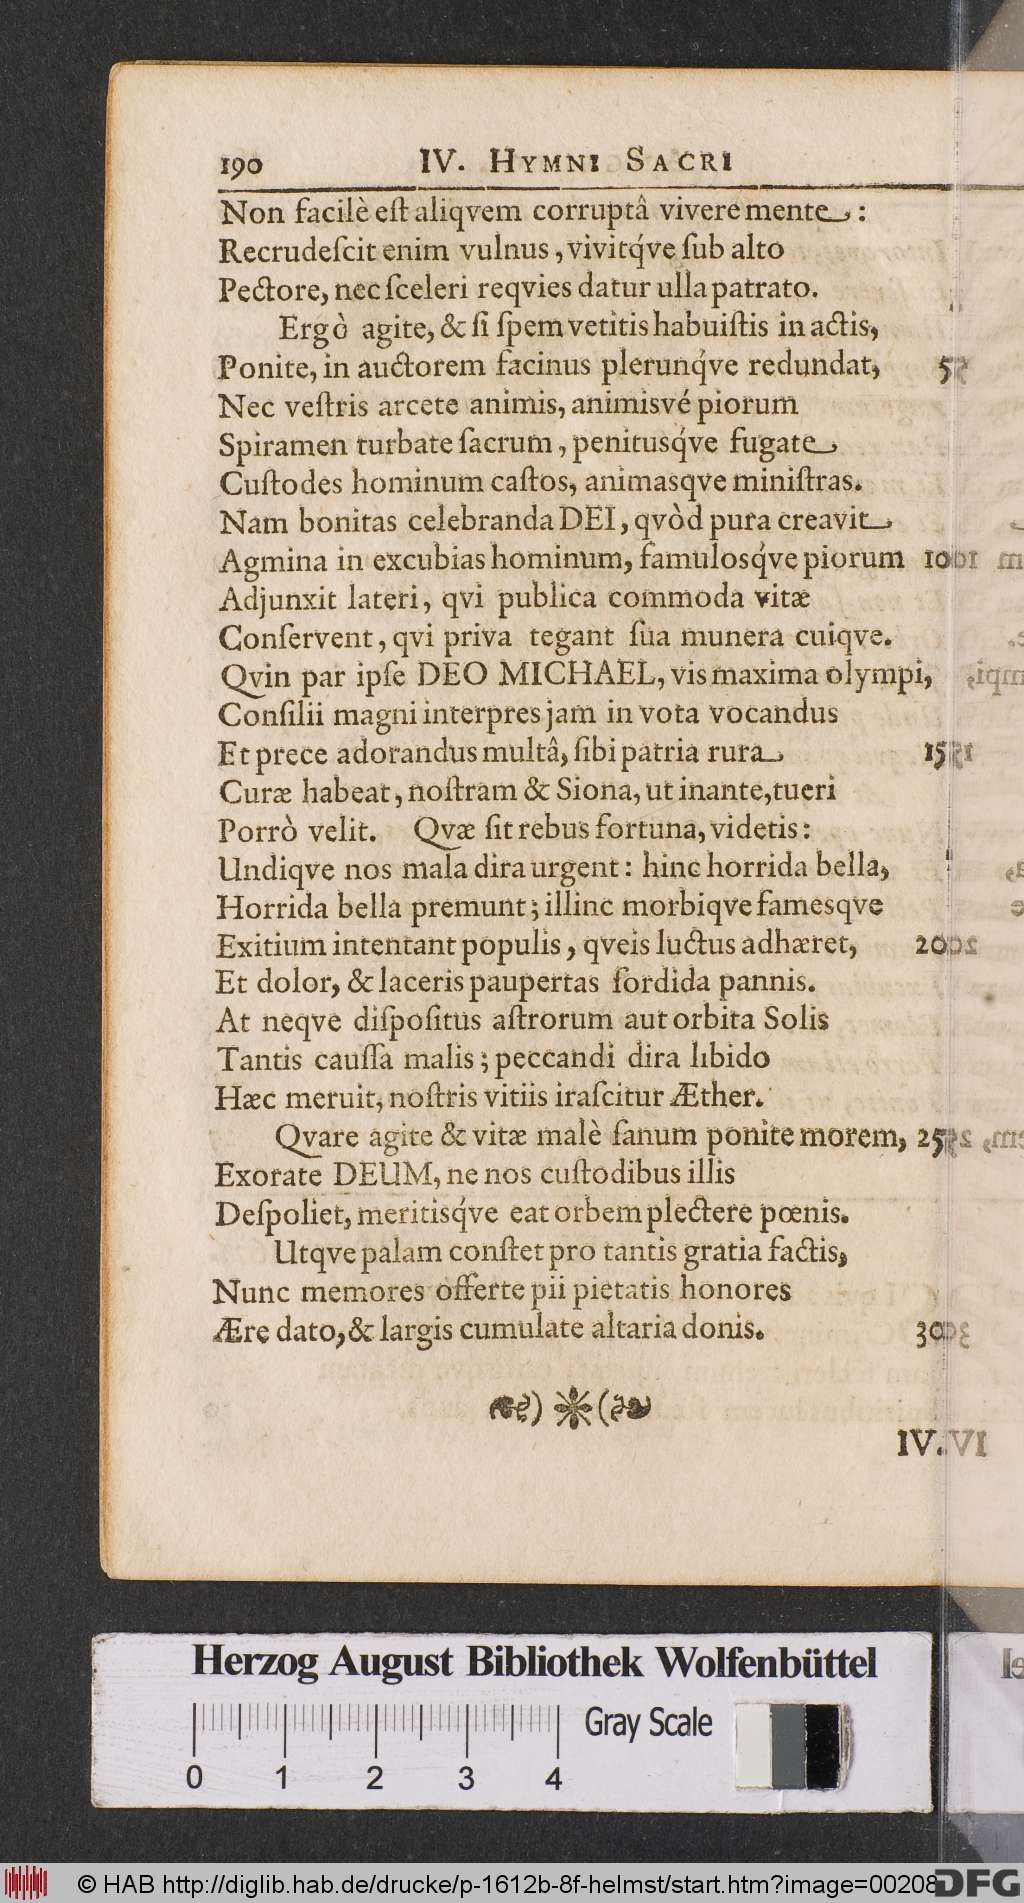 190 IV. HYMNI SACRI
Non facilè eſt aliqvem corruptâ vivere mente :
Recrudeſcit enim vulnus, vivitq́ve ſub alto
Pectore, nec ſceleri reqvies datur ulla patrato.
Ergò agite, & ſi ſpem vetitis habuiſtis in actis,
Ponite, in auctorem facinus plerunq́ve redundat, 5
Nec veſtris arcete animis, animisvé piorum
Spiramen turbate ſacrum, penitusq́ve fugate
Cuſtodes hominum caſtos, animasqve miniſtras.
Nam bonitas celebranda DEI, qvòd pura creavit
Agmina in excubias hominum, famulosq́ve piorum 10
Adjunxit lateri, qvi publica commoda vitæ
Conſervent, qvi priva tegant ſua munera cuiqve.
Qvin par ipſe DEO MICHAEL, vis maxima olympi,
Conſilii magni interpres jam in vota vocandus
Et prece adorandus multâ, ſibi patria rura 15
Curæ habeat, noſtram & Siona, ut inante, tueri
Porrò velit. Qvæ ſit rebus fortuna, videtis:
Undiqve nos mala dira urgent: hinc horrida bella,
Horrida bella premunt; illinc morbiqve famesqve
Exitium intentant populis, qveis luctus adhæret, 20
Et dolor, & laceris paupertas ſordida pannis.
At neqve diſpoſitus aſtrorum aut orbita Solis
Tantis cauſſa malis; peccandi dira libido
Hæc meruit, noſtris vitiis iraſcitur Æther.
Qvare agite & vitæ malè ſanum ponite morem, 25
Exorate DEUM, ne nos cuſtodibus illis
Deſpoliet, meritisq́ve eat orbem plectere pœnis.
Utqve palam conſtet pro tantis gratia factis,
Nunc memores offerte pii pietatis honores
Ære dato, & largis cumulate altaria donis. 30
IV. 
Herzog August Bibliothek Wolfenbüttel
Gray Scale
0 1 2 3 4
© HAB http://diglib.hab.de/drucke/p-1612b-8f-helmst/start.htm?image=00208
DFG